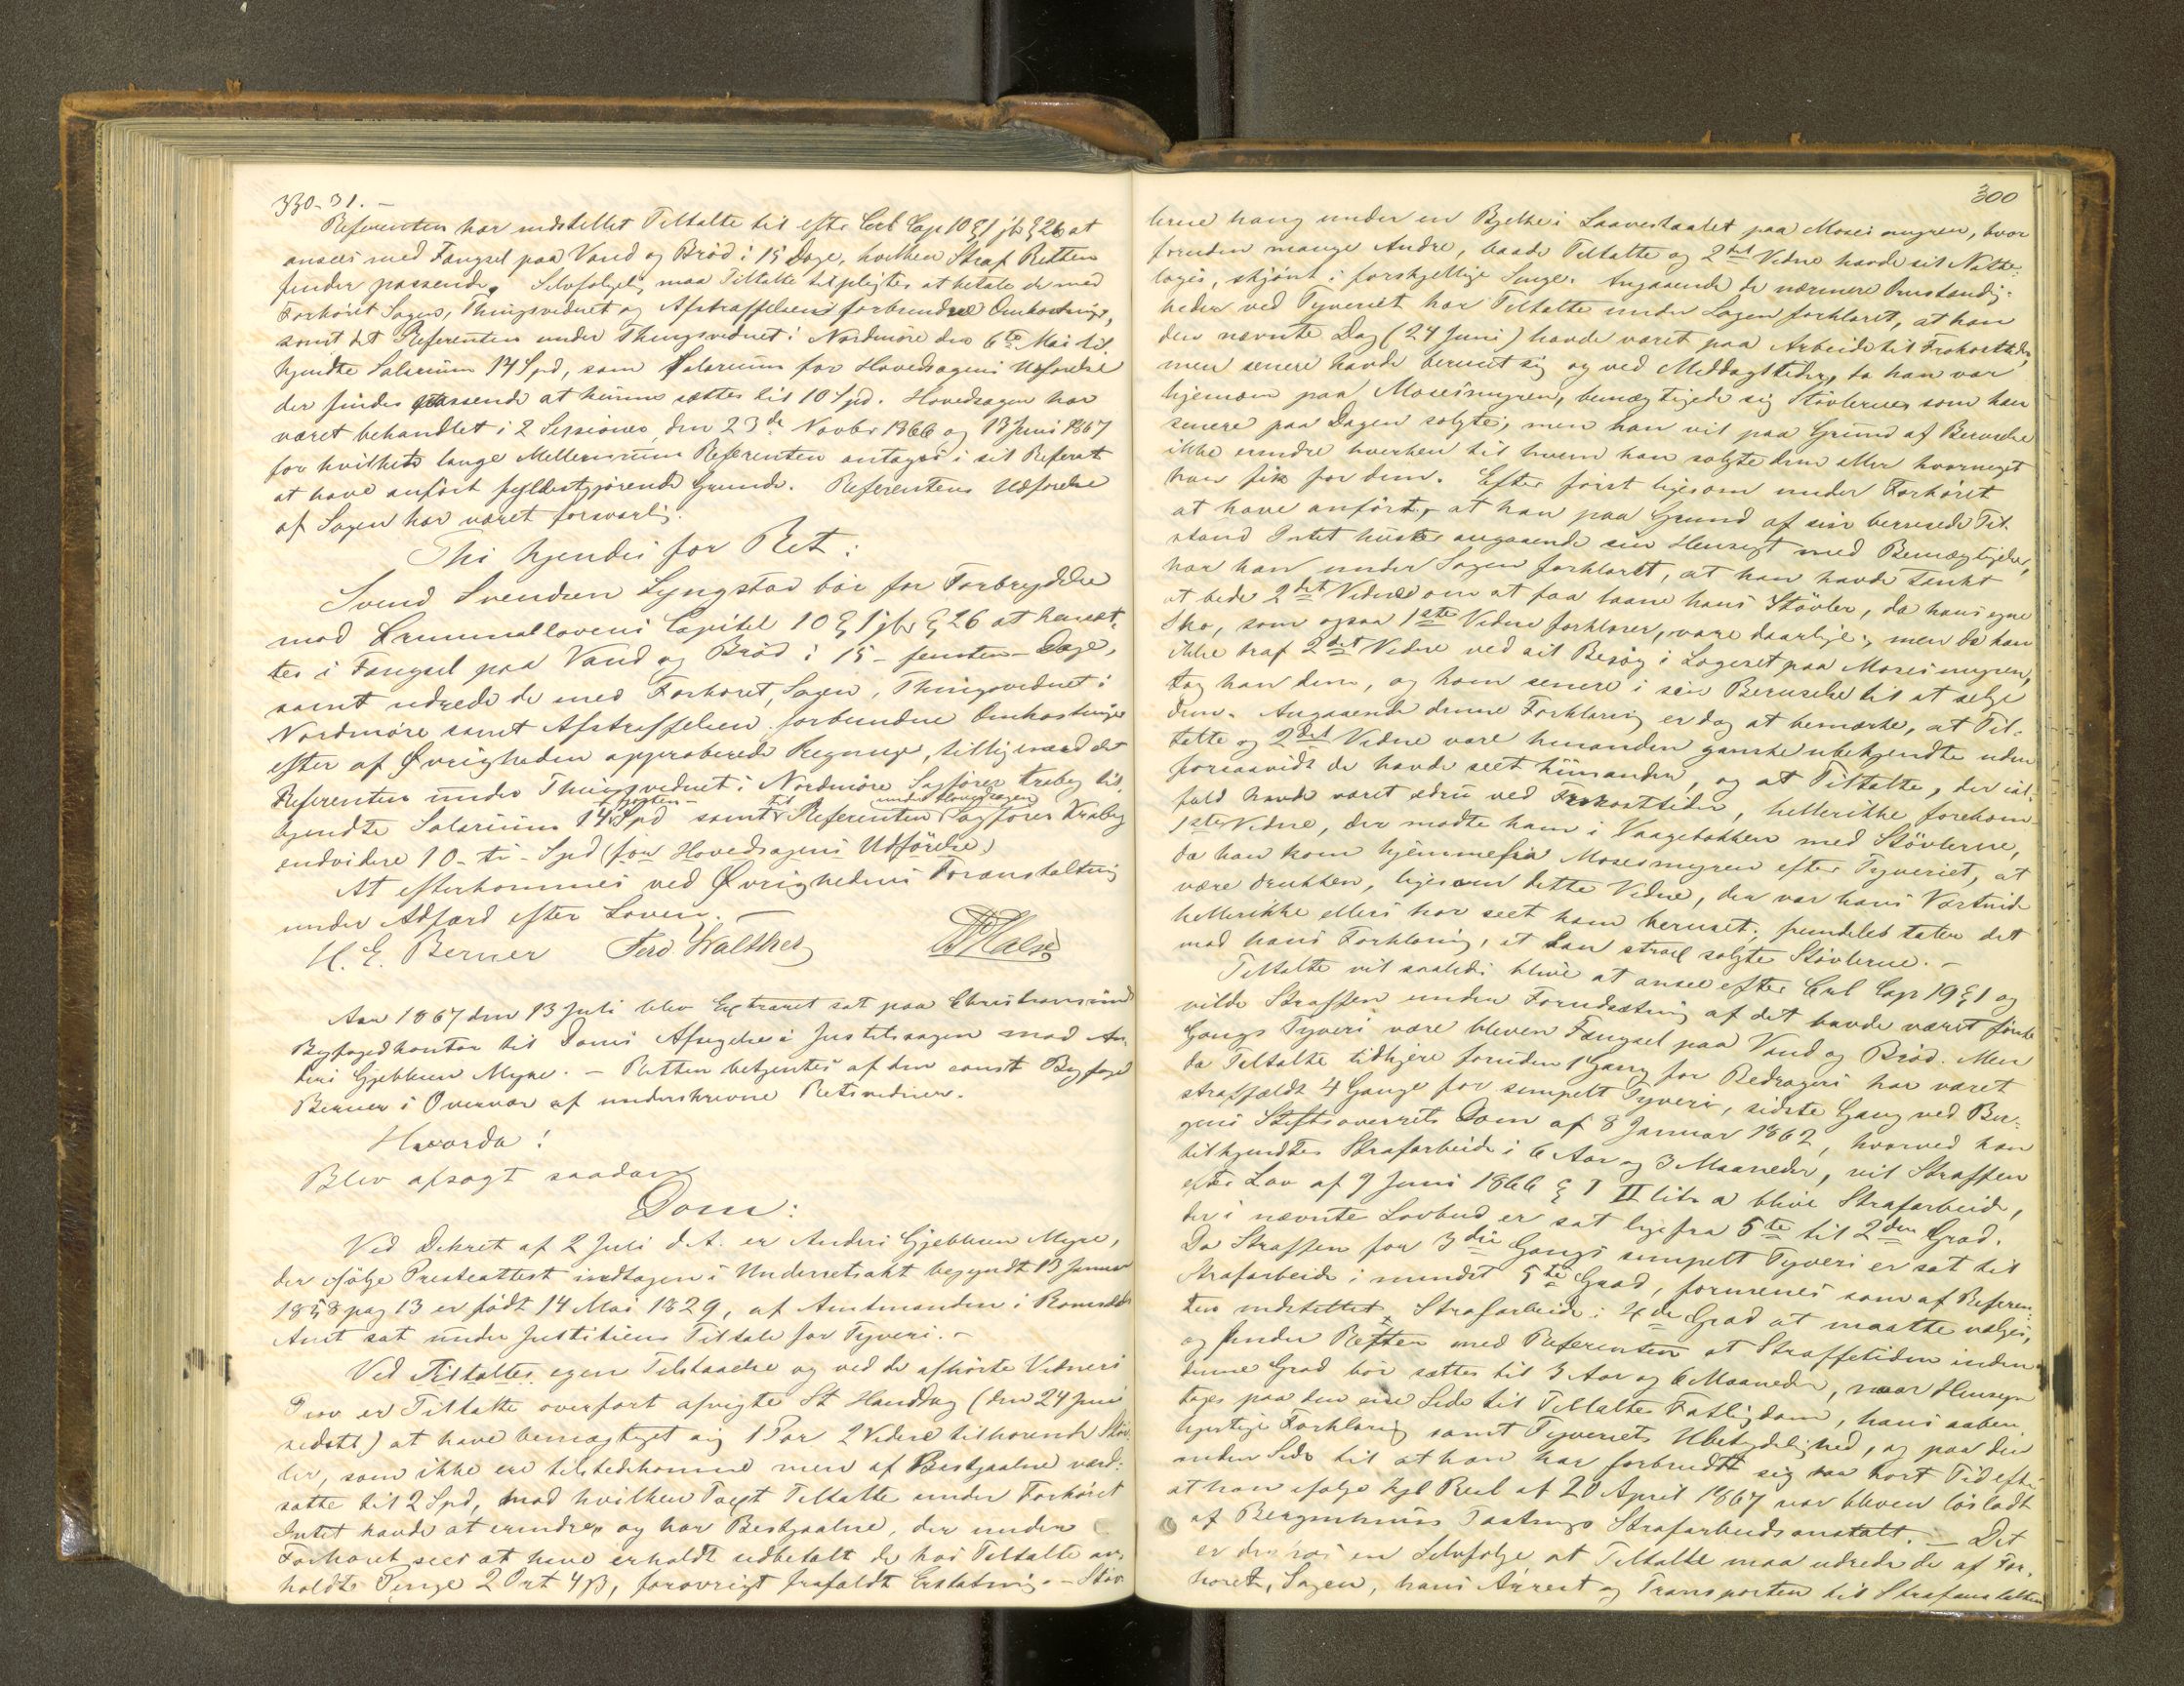 330-31. –
Referenten har indstillet Tiltalte til efter Crl Cap 10 § 1 jfr § 26 at
ansees med Fængsel paa Vand og Brød i 15 Dage, hvilken Straf Retten
finder passende. Selvfølgelig maa Tiltalte tilpligtes at betale de med
Forhøret Sagen, Thingsvidnet og Afstraffelsen forbundne Omkostninger,
samt det Referenten under Thingsvidnet i Nordmøre den 6te Mai til
kjendte Salarium 14 Spd, som Salarium for Hovedsagens Udførelse
der findes passende at kunne sættes til 10 Spd. Hovedsagen har
været behandlet i 2 Sessioner, den 23de Novbr 1866 og 13 Juni 1867
for hvilket lange Mellemrum Referenten antages i sit Referat
at have anført fyldestgjørende Grunde. Referentens Udførelse
af Sagen har været forsvarlig.
Thi kjendes for Ret:
Svend Svendsen Lyngstad bør for Forbrydelse
mod Criminallovens Capitel 10 § 1 jfr § 26 at hensæt-
tes i Fængsel paa Vand og Brød i 15 – femten – Dage,
samt udrede de med Forhøret, Sagen, Thingsvidnet i
Nordmøre samt Afstraffelsen forbundne Omkostninger
efter af Øvrigheden approberede Regninger, tilligemed det
Referenten under Thingsvidnet i Nordmøre Sagfører Krabeg til-
– fjorten – til under Hovedsagen
kjendte Salarium 14 Spd samt Referenten Sagfører Krabeg
endvidere 10 – ti – Spd (for Hovedsagens Udførelse)
At efterkommes ved Øvrighedens Foranstaltning
under Adfærd efter Loven. –
H. E. Berner Ferd Walther
Aar 1867 den 13 Juli blev Extraret sat paa Christianssund
Byfogedkontor til Doms Afsigelse i Justitssagen mod An-
ders Gjebhsen Myre. – Retten betjentes af den const Byfoged
Berner i Overvær af underskrevne Retsvidner.
Hvorda!
Blev afsagt saadan
Dom:
Ved Dekret af 2 Juli d. A. er Anders Gjebhsen Myre,
der ifølge Presteattest indtagen i Underretsakt begyndt 13 Januar
1858 pag 13 er født 14 Mai 1829, af Amtmanden i Romsdals
Amt sat under Justitiens Tiltale for Tyveri. –
Ved Tiltaltes egen Tilstaaelse og ved de afhørte Vidners
Prov er Tiltalte overført afvigte St Hansdag (den 24 Juni
sidstl) at have bemægtiget sig 1 Par 2 Vidne tilhørende Støv-
ler, som ikke ere tilstedekomne men af Bestjaalne værd-
satte til 2 Spd, mod hvilken Taxt Tiltalte under Forhøret
Intet havde at erindre og har Bestjaalne, der under
Forhøret sees at have erholdt udbetalt de hos Tiltalte an-
holdte Penge 2 Ort 4 β, forøvrigt frafaldt Erstatning. – Støv
300
lerne hang under en Bjelke i Laavestaalet paa Mosesmyren, hvor
foruden mange Andre, baade Tiltalte og 2det Vidne havde sit Natte-
logis, skjønt i forskjellige Senge. Angaaende de nærmere Omstændig-
heder ved Tyveriet har Tiltalte under Sagen forklaret, at han
den nævnte Dag (24 Juni) havde været paa Arbeide til Frokosttider,
men senere havde beruset sig og ved Middagstider, da han var
hjemom paa Mosesmyren, bemægtigede sig Støvlerne, som han
senere paa Dagen solgte, men han vil paa Grund af Beruselse
ikke erindre hverken til hvem han solgte dem eller hvormeget
han fik for dem. Efter først ligesom under Forhøret
at have anført, at han paa Grund af sin berusede Til-
stand Intet huskes angaaende sin Hensigt med Bemægtigelsen,
har han under Sagen forklaret, at han havde tænkt
at bede 2det Vidne om at faa laane hans Støvler, da hans egne
Sko, som ogsaa 1ste Vidne forklarer, vare daarlige; men da han
ikke traf 2det Vidne ved sit Besøg i Logeret paa Mosesmyren,
tog han dem, og kom senere i sin Beruselse til at selge
dem. Angaaende denne Forklaring er dog at bemærke, at Til-
talte og 2det Vidne vare hinanden ganske ubekjendte uden
forsaavidt de havde seet hinanden, og at Tiltalte, der ial-
fald havde været ædru ved Frokosttider, hellerikke forekom
1ste Vidne, der mødte ham i Vaagebakken med Støvlerne,
da han kom hjemmefra Mosesmyren efter Tyveriet, at
være drukken, ligesom dette Vidne, der var hans Vertinde
hellerikke ellers har seet ham beruset; fremdeles taler det
mod hans Forklaring, at han strax solgte Støvlerne. –
Tiltalte vil saaledes blive at ansee efter Crl Cap 19 § 1 og
vilde Straffen under Forudsætning af det havde været første
Gangs Tyveri være bleven Fængsel paa Vand og Brød. Men
da Tiltalte tidligere foruden 1 Gang for Bedrageri har været
straffældt 4 Gange for simpelt Tyveri, sidste Gang ved Ber-
gens Stiftsoverrets Dom af 8 Januar 1862, hvorved han
tilkjendtes Strafarbeide i 6 Aar og 3 Maaneder, vil Straffen
efter Lov af 9 Juni 1866 § 1 II litr a blive Strafarbeide,
der i nævnte Lovbud er sat lige fra 5te til 2den Grad.
Da Straffen for 3die Gangs simpelt Tyveri er sat til
Strafarbeide i mindst 5te Grad, formenes som af Referen-
ten indstillet, Strafarbeide i 4de Grad at maatte vælges,
og finder Retten med Referenten at Straffetiden inden
denne Grad bør sættes til 3 Aar og 6 Maaneder, naar Hensyn
tages paa den ene Side til Tiltaltes Fattigdom, hans aaben
hjertige Forklaring samt Tyveriets Ubetydelighed, og paa den
anden Side til at han har forbrudt sig saa kort Tid efter
at han ifølge kgl Resl af 20 April 1867 var bleven løsladt
af Bergenhuus Fæstnings Strafarbeidsanstalt. – Det
er derhos en Selvfølge at Tiltalte maa udrede de af For-
høret, Sagen, hans Arrest og Transporten til Strafanstalten